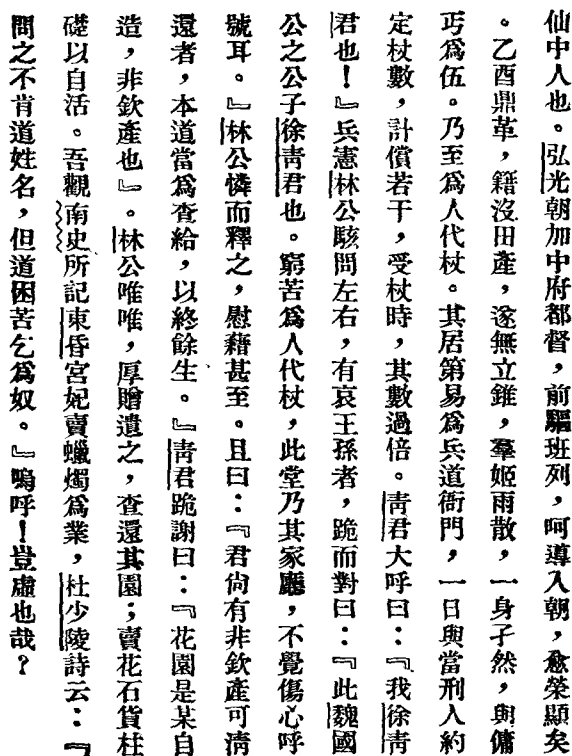 仙中人也。弘光朝加中府都督，前驅班列，呵導入朝，愈榮顯矣
。乙酉鼎革，籍沒田產，遂無立錐，羣姬雨散，一身孑然，與傭
丐爲伍。乃至爲人代杖。其居第易爲兵道衙門，一日與當刑人約
定杖數，計償若干，受杖時，其數過倍。靑君大呼曰：『我徐靑
君也！』兵憲林公駭問左右，有哀王孫者，跪而對曰：『此魏國
公之公子徐靑君也。窮苦爲人代杖，此堂乃其家廳，不覺傷心呼
號耳。』林公憐而釋之，慰藉甚至。且曰：『君尙有非欽產可淸
還者，本道當爲查給，以終餘生。』靑君跪謝曰：『花園是某自
造，非欽產也』。林公唯唯，厚贈遺之，查還其園；賣花石貨柱
礎以自活。吾觀南史所記東昏宮妃賣蠟燭爲業，杜少陵詩云：『
問之不肯道姓名，但道困苦乞爲奴。』嗚呼！豈虛也哉？